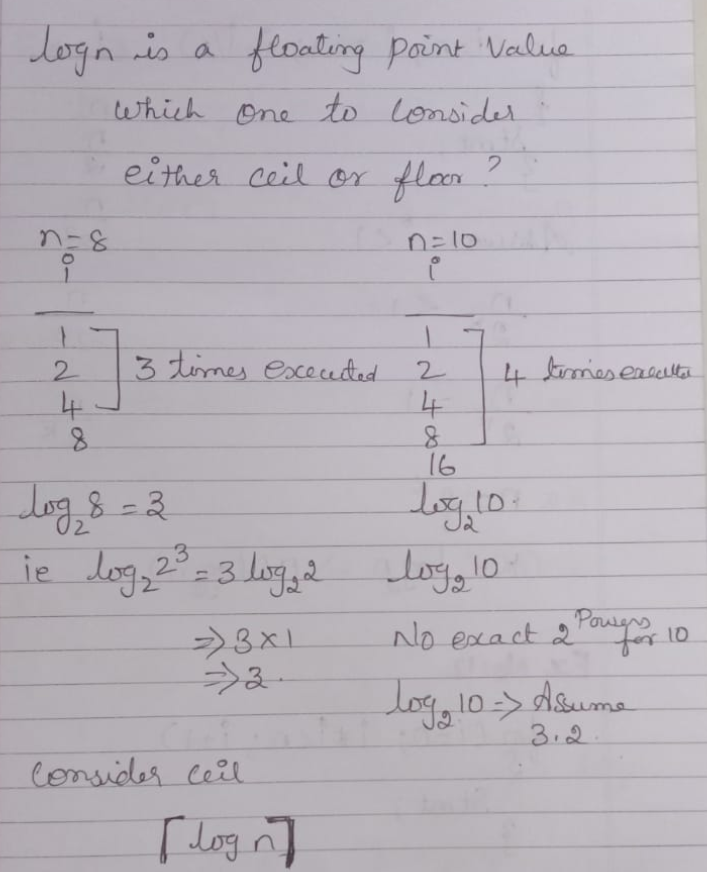 logn is a floating point Value
which one to Consider
either ceil or floor?
n=8 n=10
i i
1 1
2 ] 3 times executed 2 ] 4 times
4 4
8 8
16
log₂8 = 3 log₂10
ie log₂2³ = 3 log₂2 log₂10
⇒ 3×1 No exact 2 Powers for 10
⇒ 3. log₂10 ⇒ Assume
3.2.
Consider ceil
⌈log n⌉